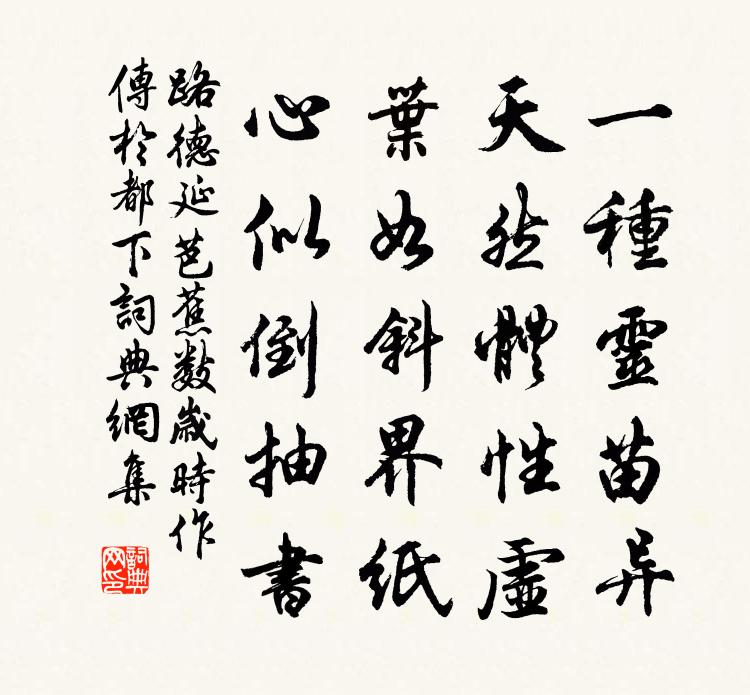 一種靈苗异
天然體性虛
葉如斜界紙
心似倒抽書
路德延芭蕉数歲時作
傳於都下詞典網集
詞典網印